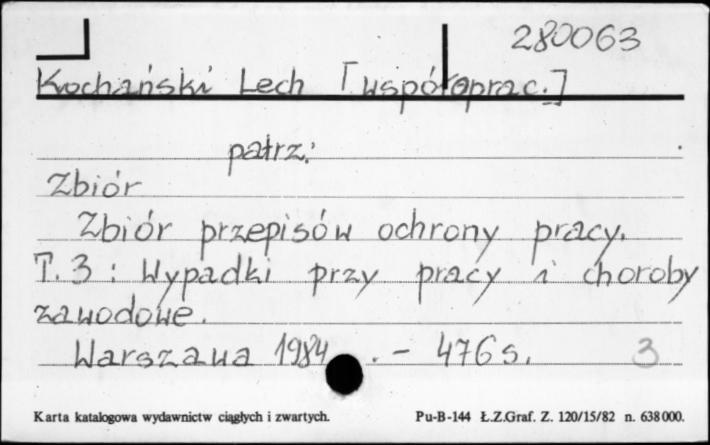 280063
Kochański Lech [współoprac.]
patrz:
Zbiór
Zbiór przepisów ochrony pracy.
T. 3 : Wypadki przy pracy i choroby
zawodowe.
Warszawa 1984 . - 476 s. 3
Karta katalogowa wydawnictw ciągłych i zwartych. Pu-B-144 Ł.Z.Graf. Z. 120/15/82 n. 638000.